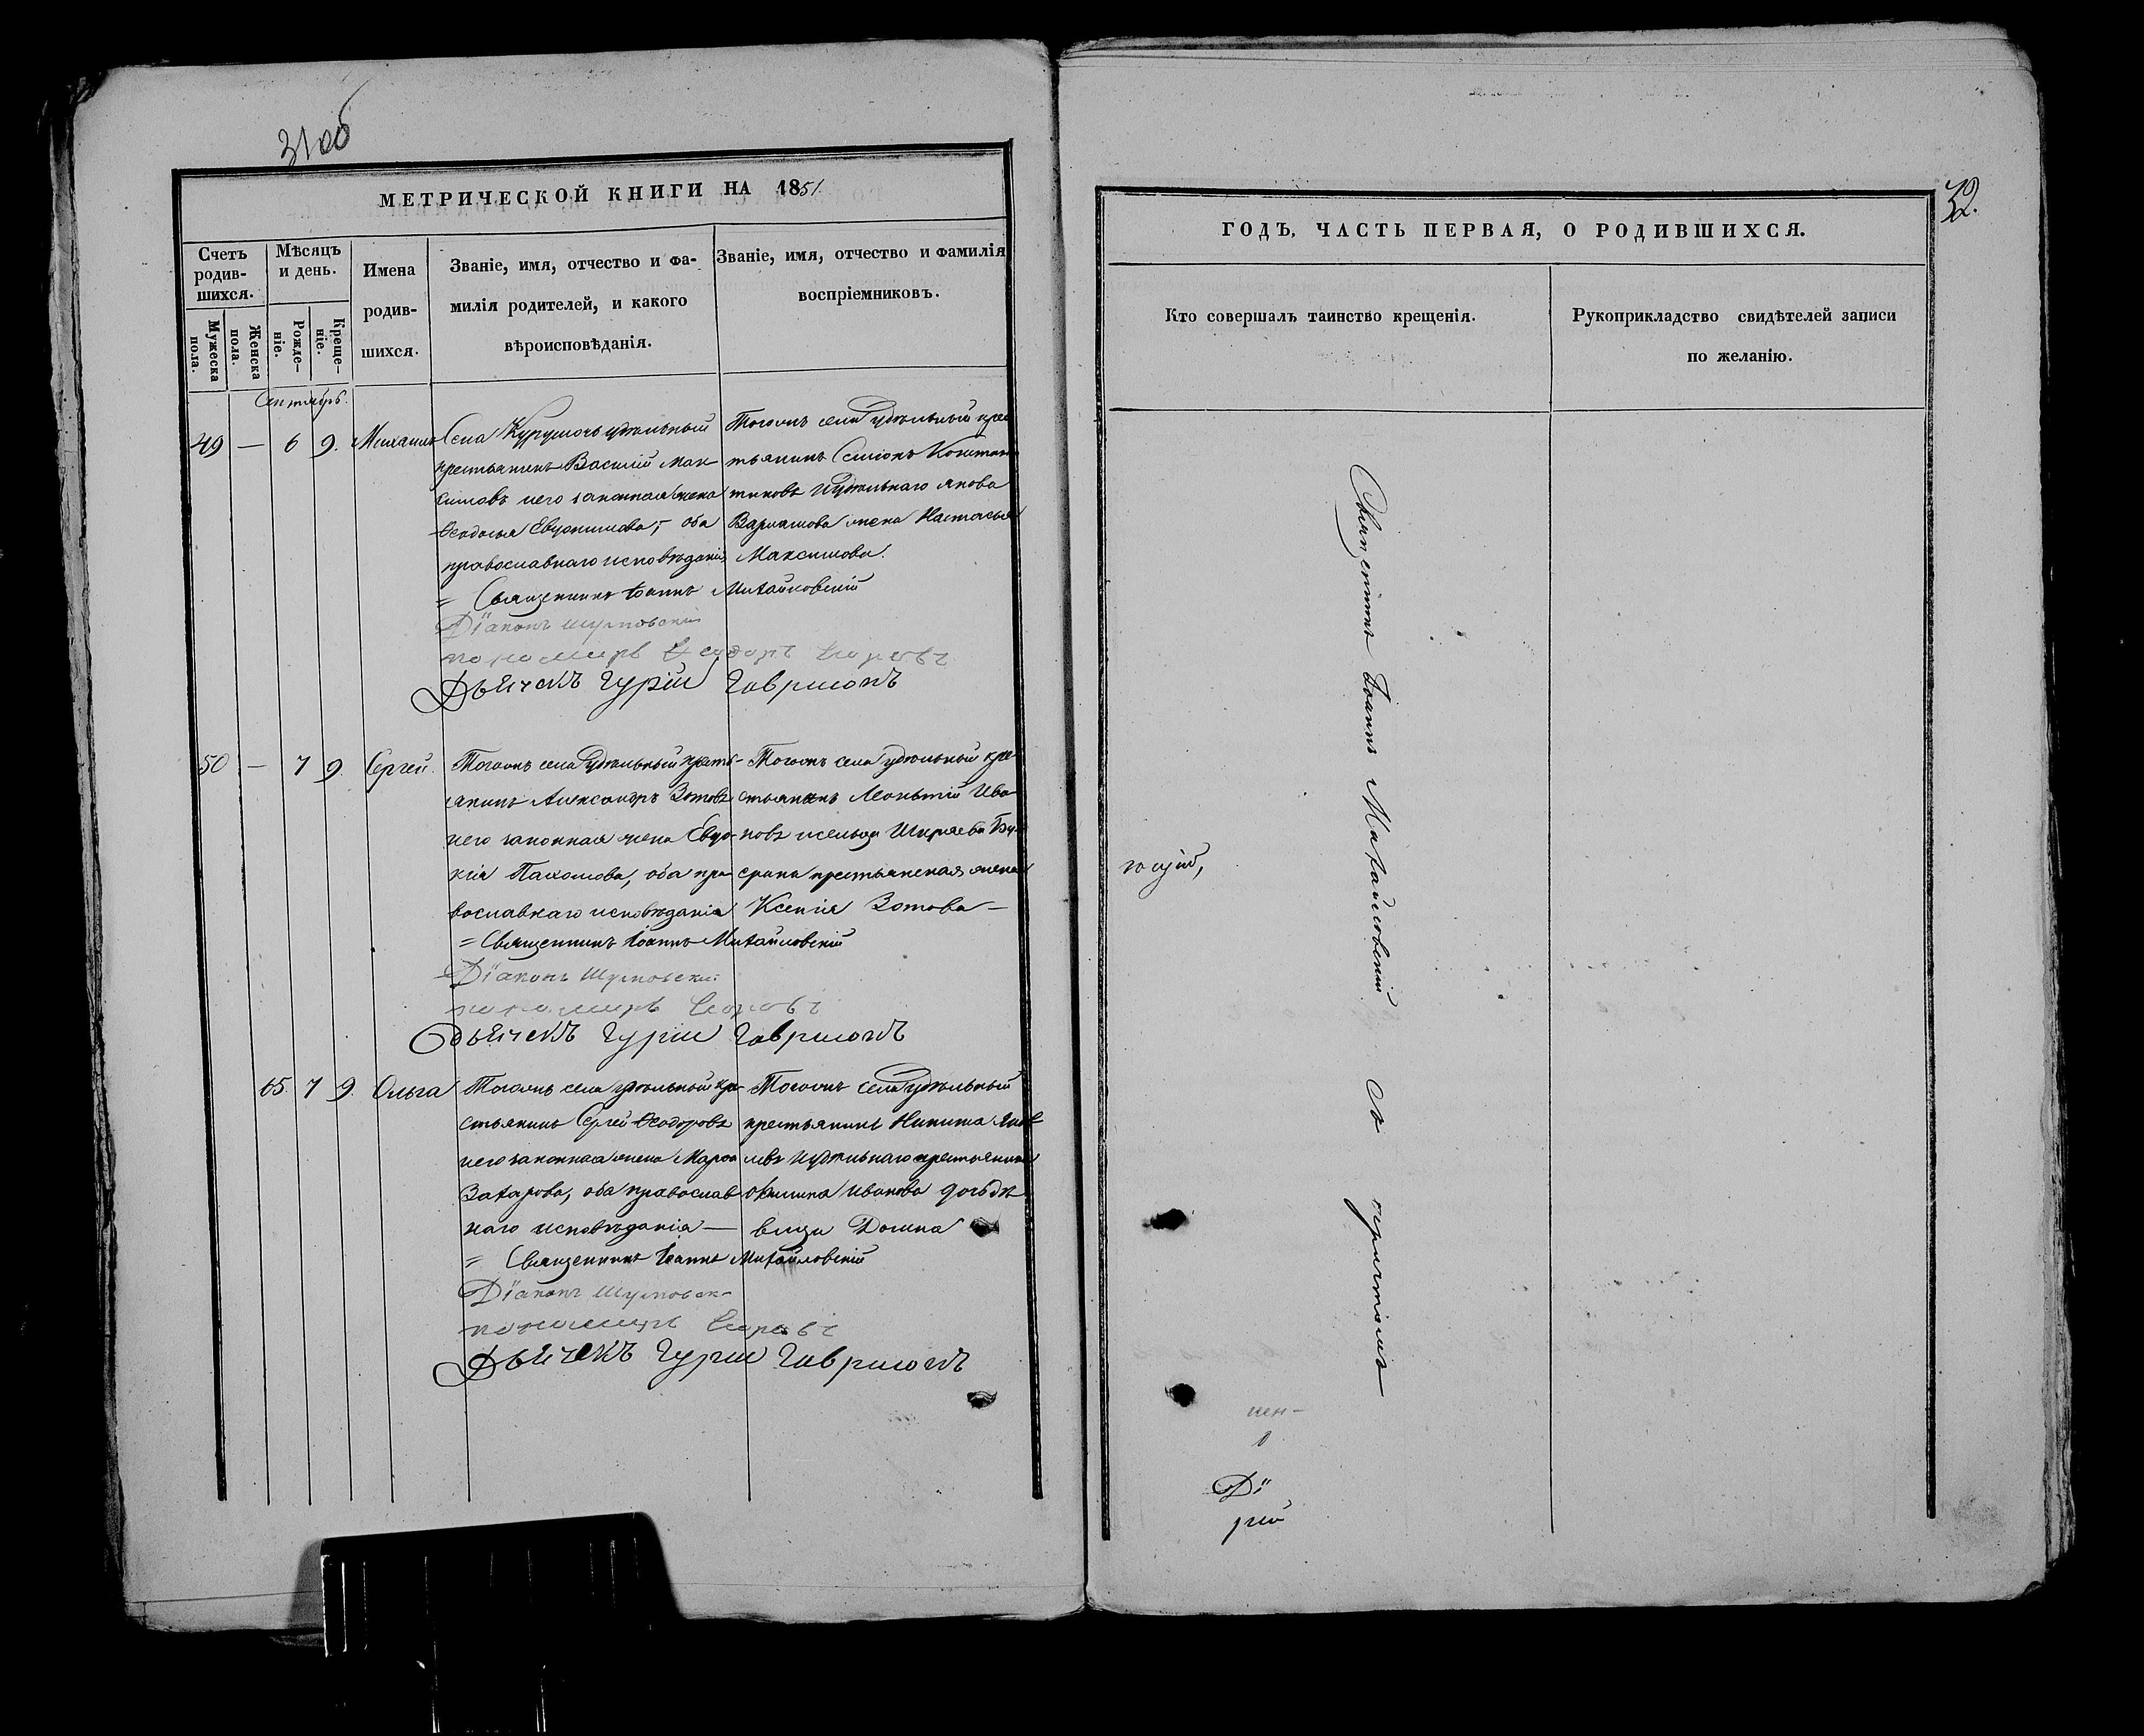 31об
МЕТРИЧЕСКОЙ КНИГИ НА 1851.
Счетъ родив-шихся.
Мѣсяцъ и день.
Имена родив-шихся.
Званіе, имя, отчество и фа-
милія родителей, и какого
вѣроисповѣданія.
Званіе, имя, отчество и фамилія
воспріемниковъ.
Мужеска пола.
Женска пола.
Рожде-ніе.
Креще-ніе.
Сентябрь.
49 — 6 9. Михаилъ
Села удѣльный
крестьянинъ Василій Мак-
симовъ иего законная жена
Ѳеодосья Евдокимова, оба
православнаго исповѣданія
Тогожъ села удѣльный крес
тьянинъ Симіонъ Констан
тиновъ иудѣльнаго Якова
Варламова жена Настасья
Максимова.
= Священникъ Іоаннъ Михайловскій
Діаконъ
пономарь Ѳеодоръ
Дьячекъ Гурій Гавриловъ
50 — 7 9. Сергей.
Тогожъ села удѣльный кресть-
янинъ Александръ Зотовъ
иего законная жена Евдо-
кія Пахомова, оба пра-
вославнаго исповѣданія
Тогожъ села удѣльный кре-
стьянинъ Леонтій Ива
новъ исельца Ширяева
крестьянская жена
Ксенія Зотова —
= Священникъ Іоаннъ Михайловскій
Діаконъ
пономарь
Дьячекъ Гурій Гавриловъ
65. 7 9. Ольга
Тогожъ села удѣльный кре-
стьянинъ Сергей Ѳеодоровъ
иего законная жена Марѳа
Захарова, оба православ
наго исповѣданія —
Тогожъ села удѣльный
крестьянинъ Никита Яков
левъ иудѣльнаго крестьянина
Иванова дочь дѣ
вица Домна
= Священникъ Іоаннъ Михайловскій
Діаконъ
пономарь
Дьячекъ Гурій Гавриловъ
32.
ГОДЪ, ЧАСТЬ ПЕРВАЯ, О РОДИВШИХСЯ.
Кто совершалъ таинство крещенія.
Рукоприкладство свидѣтелей записи
по желанію.
Священникъ Іоаннъ Михайловскій съ причтомъ
Ді
рій